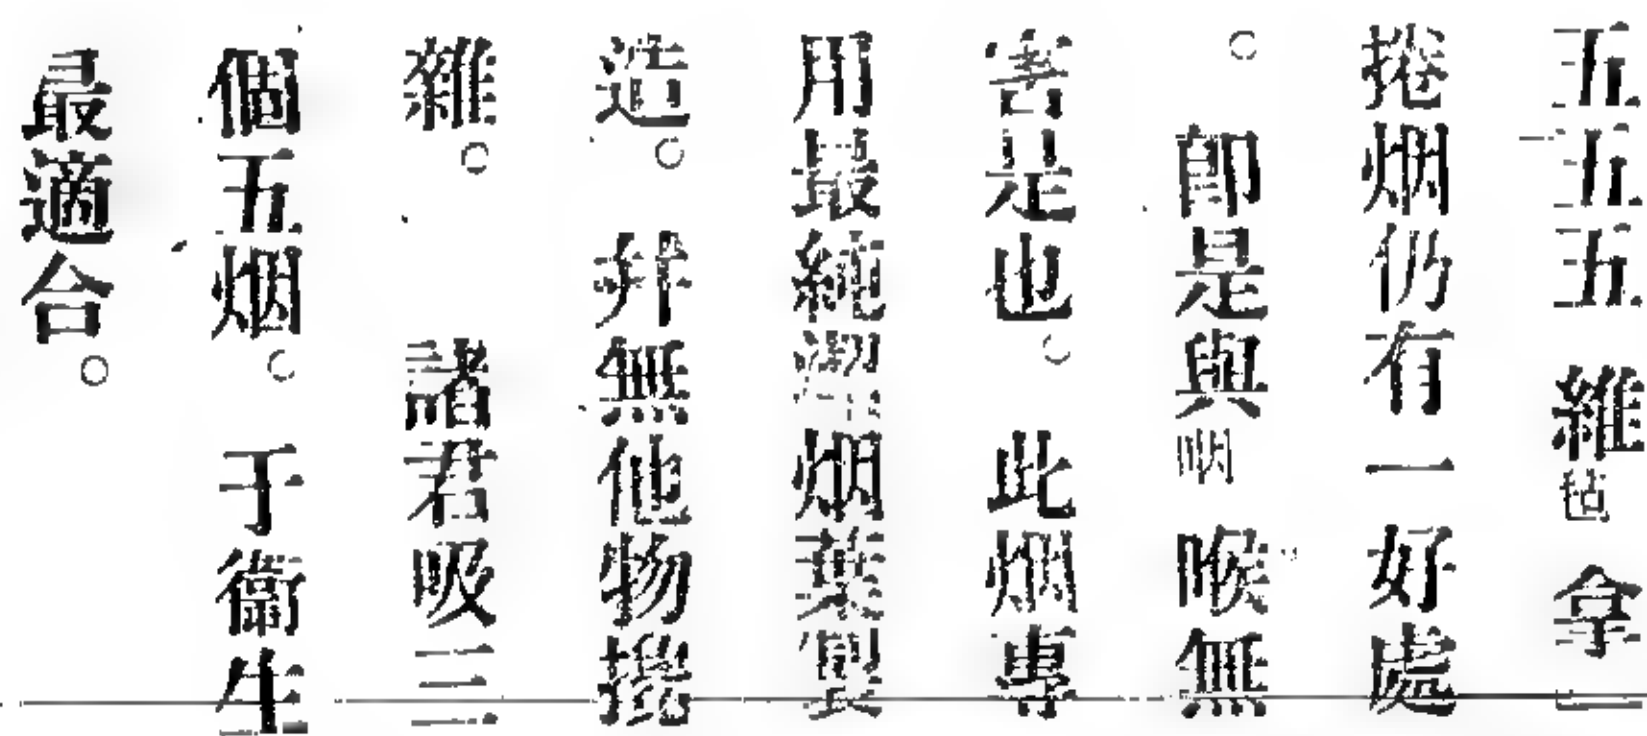 五五五 維 拿
捲烟仍有一好處
。 卽是與咽喉無
害是也。 此烟專
用最純潔烟葉製
造。 幷無他物攙
雜。 諸君吸三
個五烟。 于衞生
最適合。